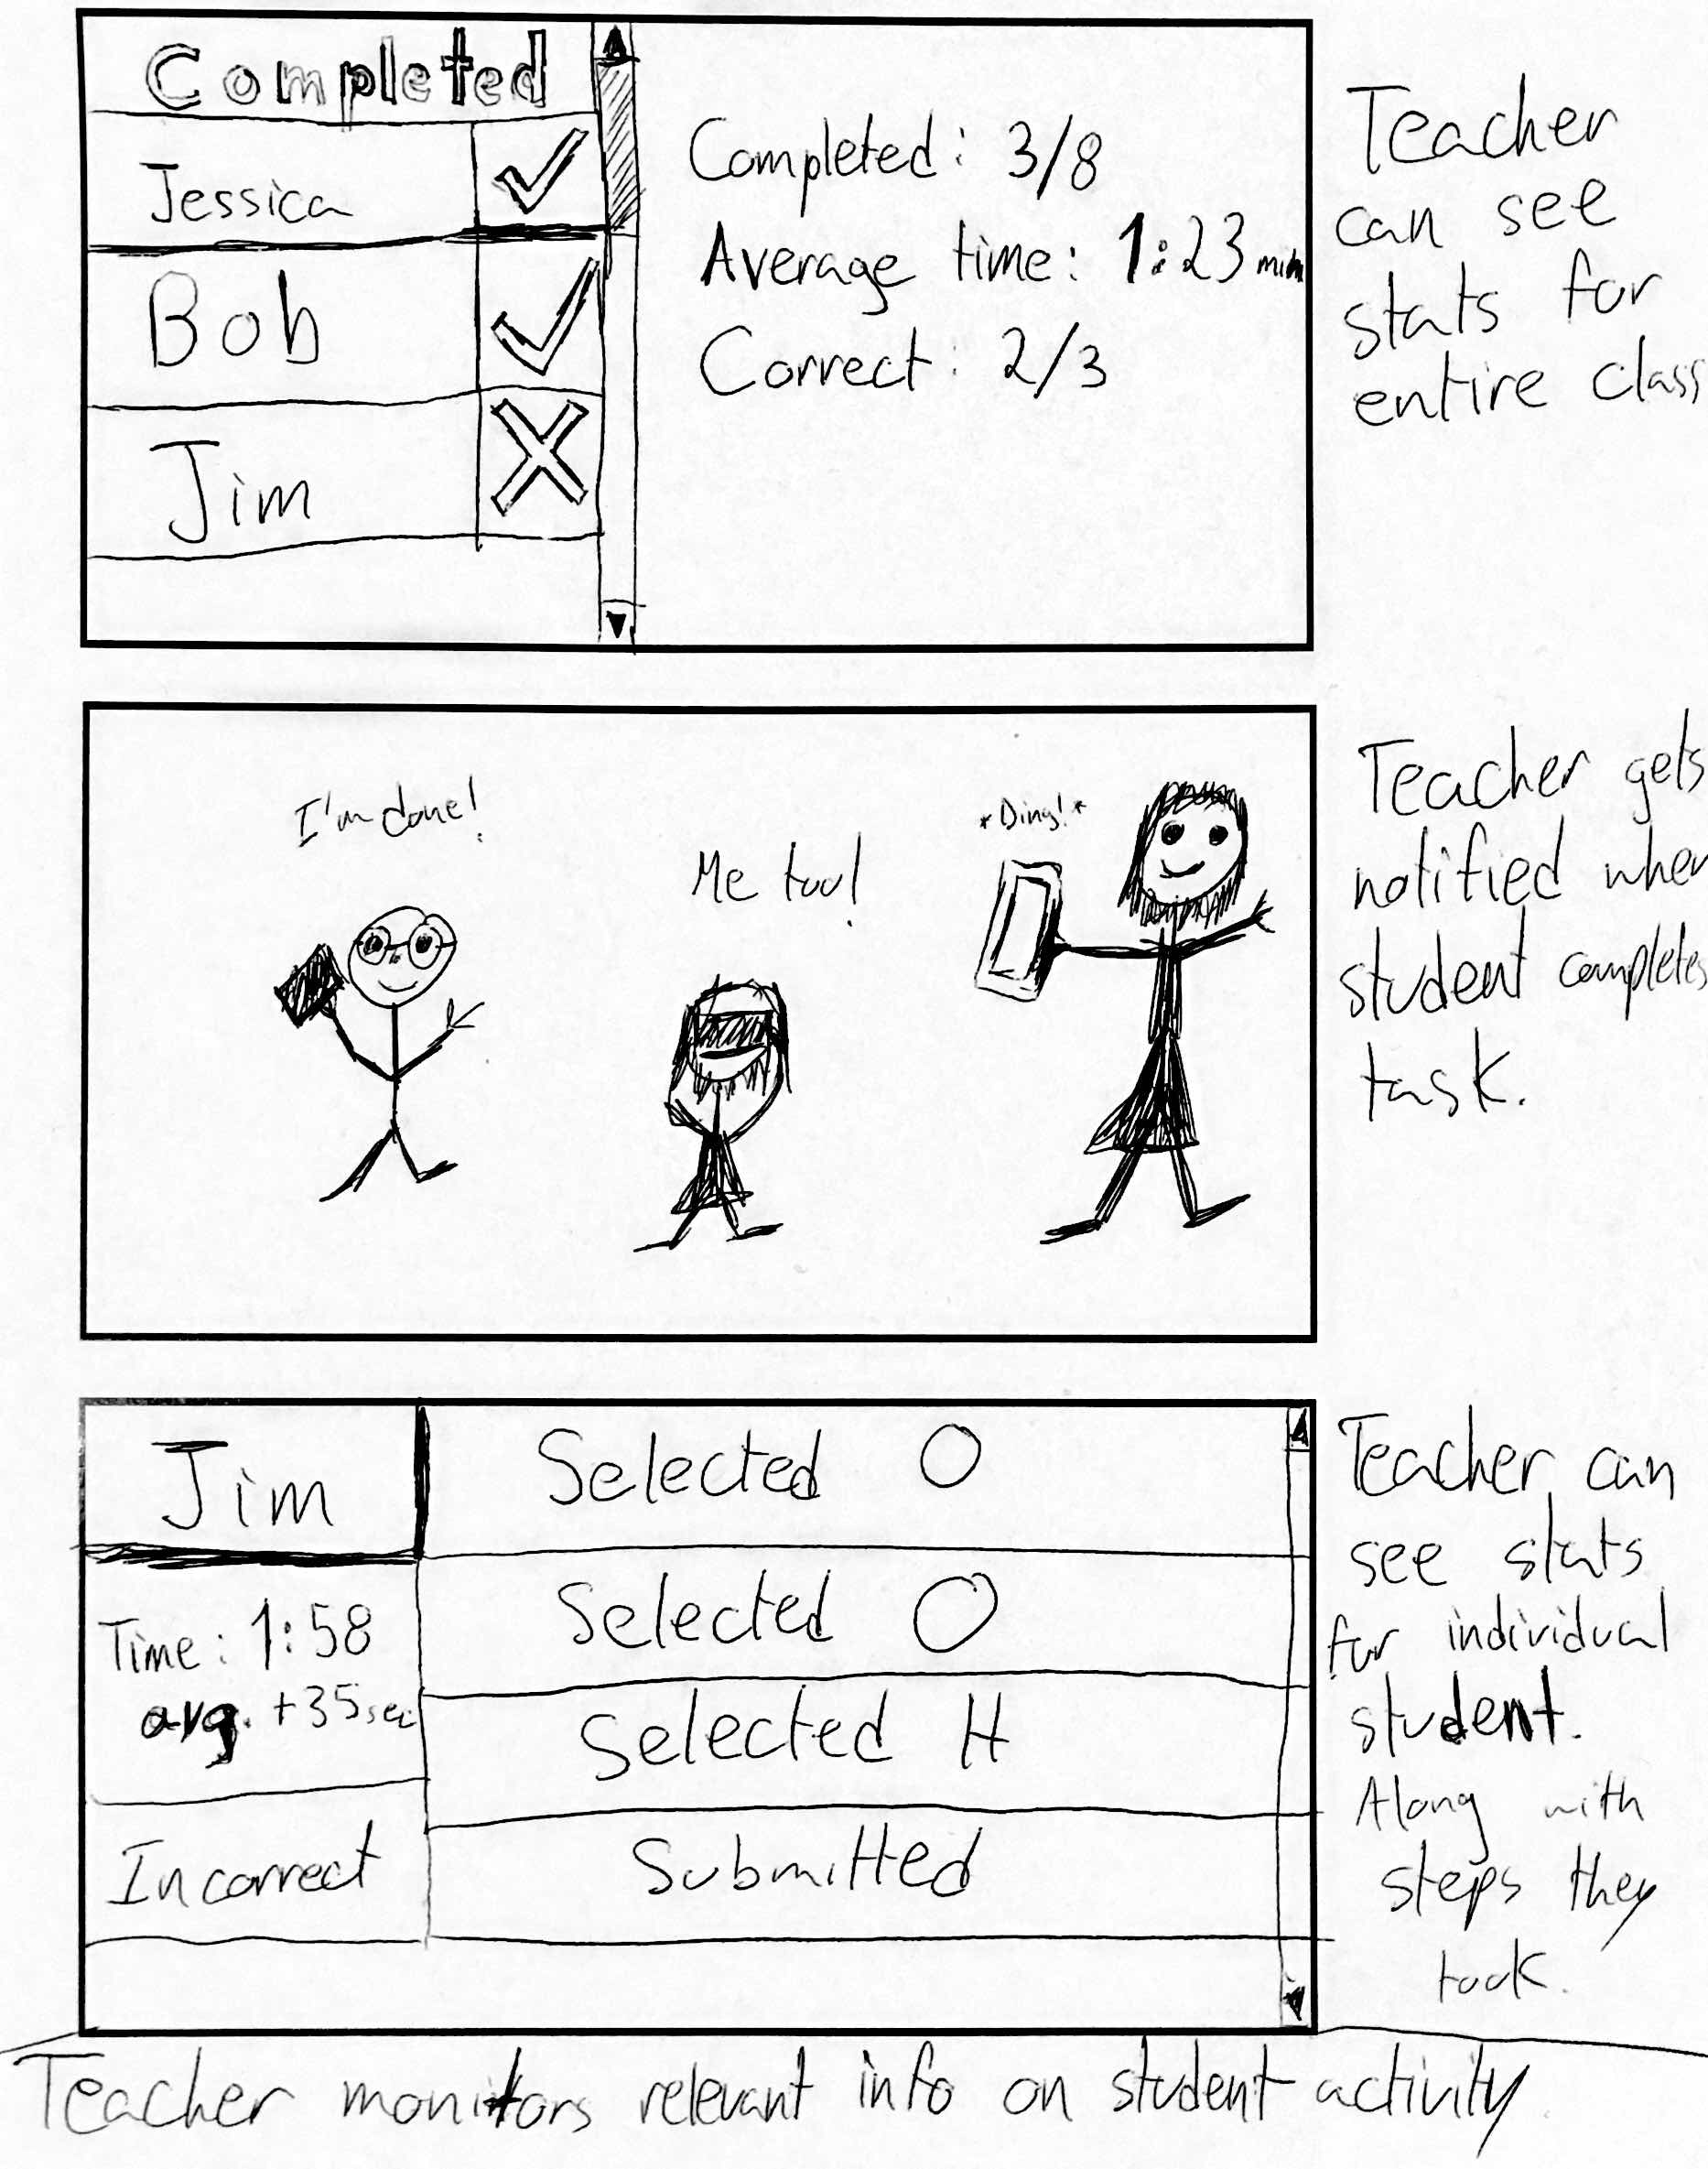 Completed
Jessica
Bob
Jim
Completed: 3/8
Average time: 1:23 min
Correct: 2/3
Teacher
can see
stats for
entire class
I'm done!
Me too!
*Ding!*
Teacher gets
notified when
student completes
task.
Jim
Time: 1:58
avg. +35sec
Incorrect
Selected O
Selected O
Selected H
Submitted
Teacher can
see stats
for individual
student.
Along with
steps they
took.
Teacher monitors relevant info on student activity.